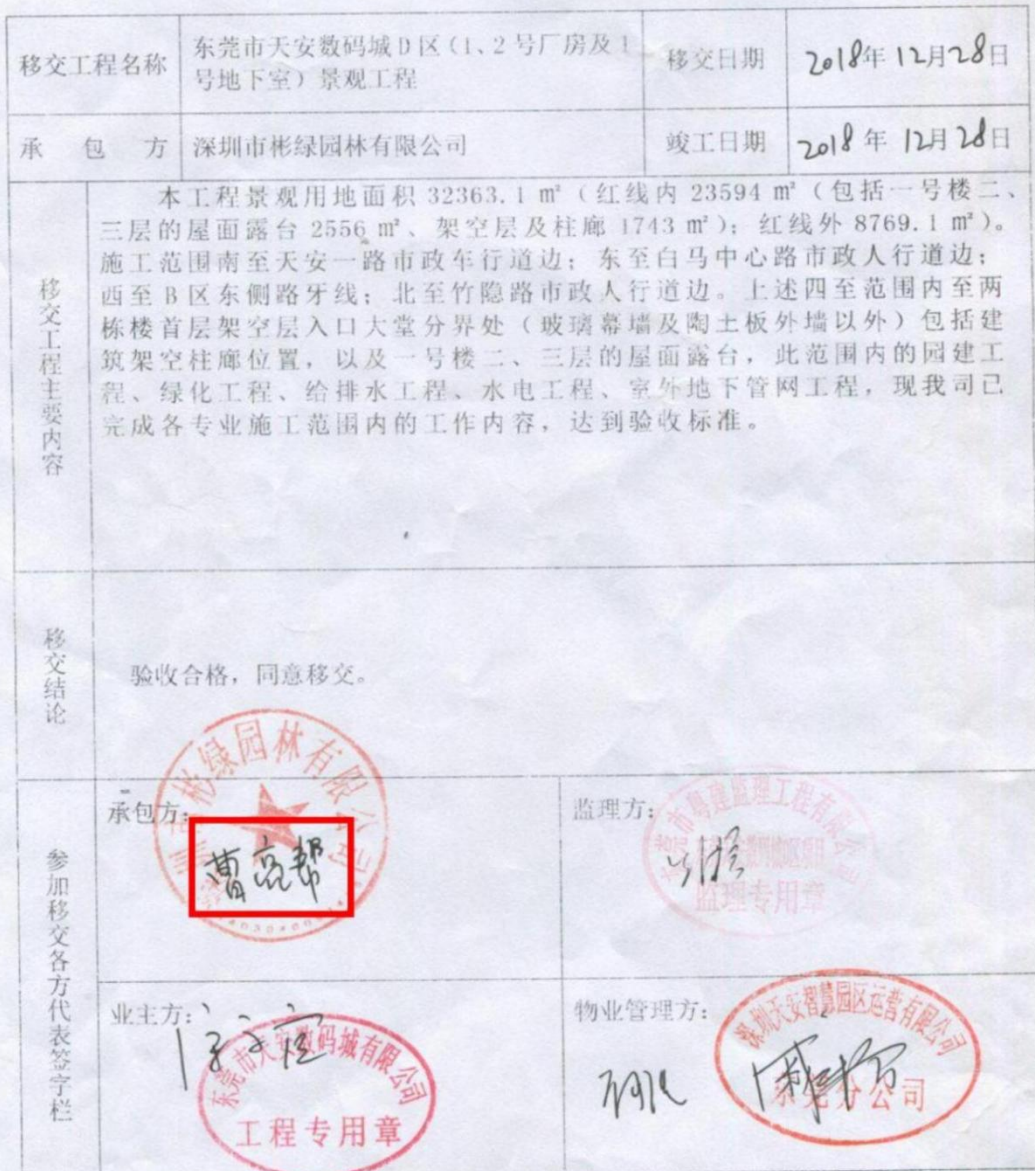 移交工程名称
东莞市天安数码城D区(1、2号厂房及1
号地下室)景观工程
移交日期
2018年12月28日
承 包 方
深圳市彬绿园林有限公司
竣工日期
2018年12月28日
移交工程主要内容
本工程景观用地面积32363.1㎡(红线内23594㎡(包括一号楼二、
三层的屋面露台2556㎡、架空层及柱廊1743㎡);红线外8769.1㎡)。
施工范围南至天安一路市政车行道边;东至白马中心路市政人行道边;
西至B区东侧路牙线;北至竹隐路市政人行道边。上述四至范围内至两
栋楼首层架空层入口大堂分界处(玻璃幕墙及陶土板外墙以外)包括建
筑架空柱廊位置,以及一号楼二、三层的屋面露台,此范围内的园建工
程、绿化工程、给排水工程、水电工程、室外地下管网工程,现我司已
完成各专业施工范围内的工作内容,达到验收标准。
移交结论
验收合格,同意移交。
参加移交各方代表签字栏
承包方:
深圳市彬绿园林有限公司
曹亮帮
监理方:
东莞市粤建监理工程有限公司
监理专用章
业主方:
东莞市天安数码城有限公司
工程专用章
物业管理方:
深圳天安智慧园区运营有限公司
东莞分公司